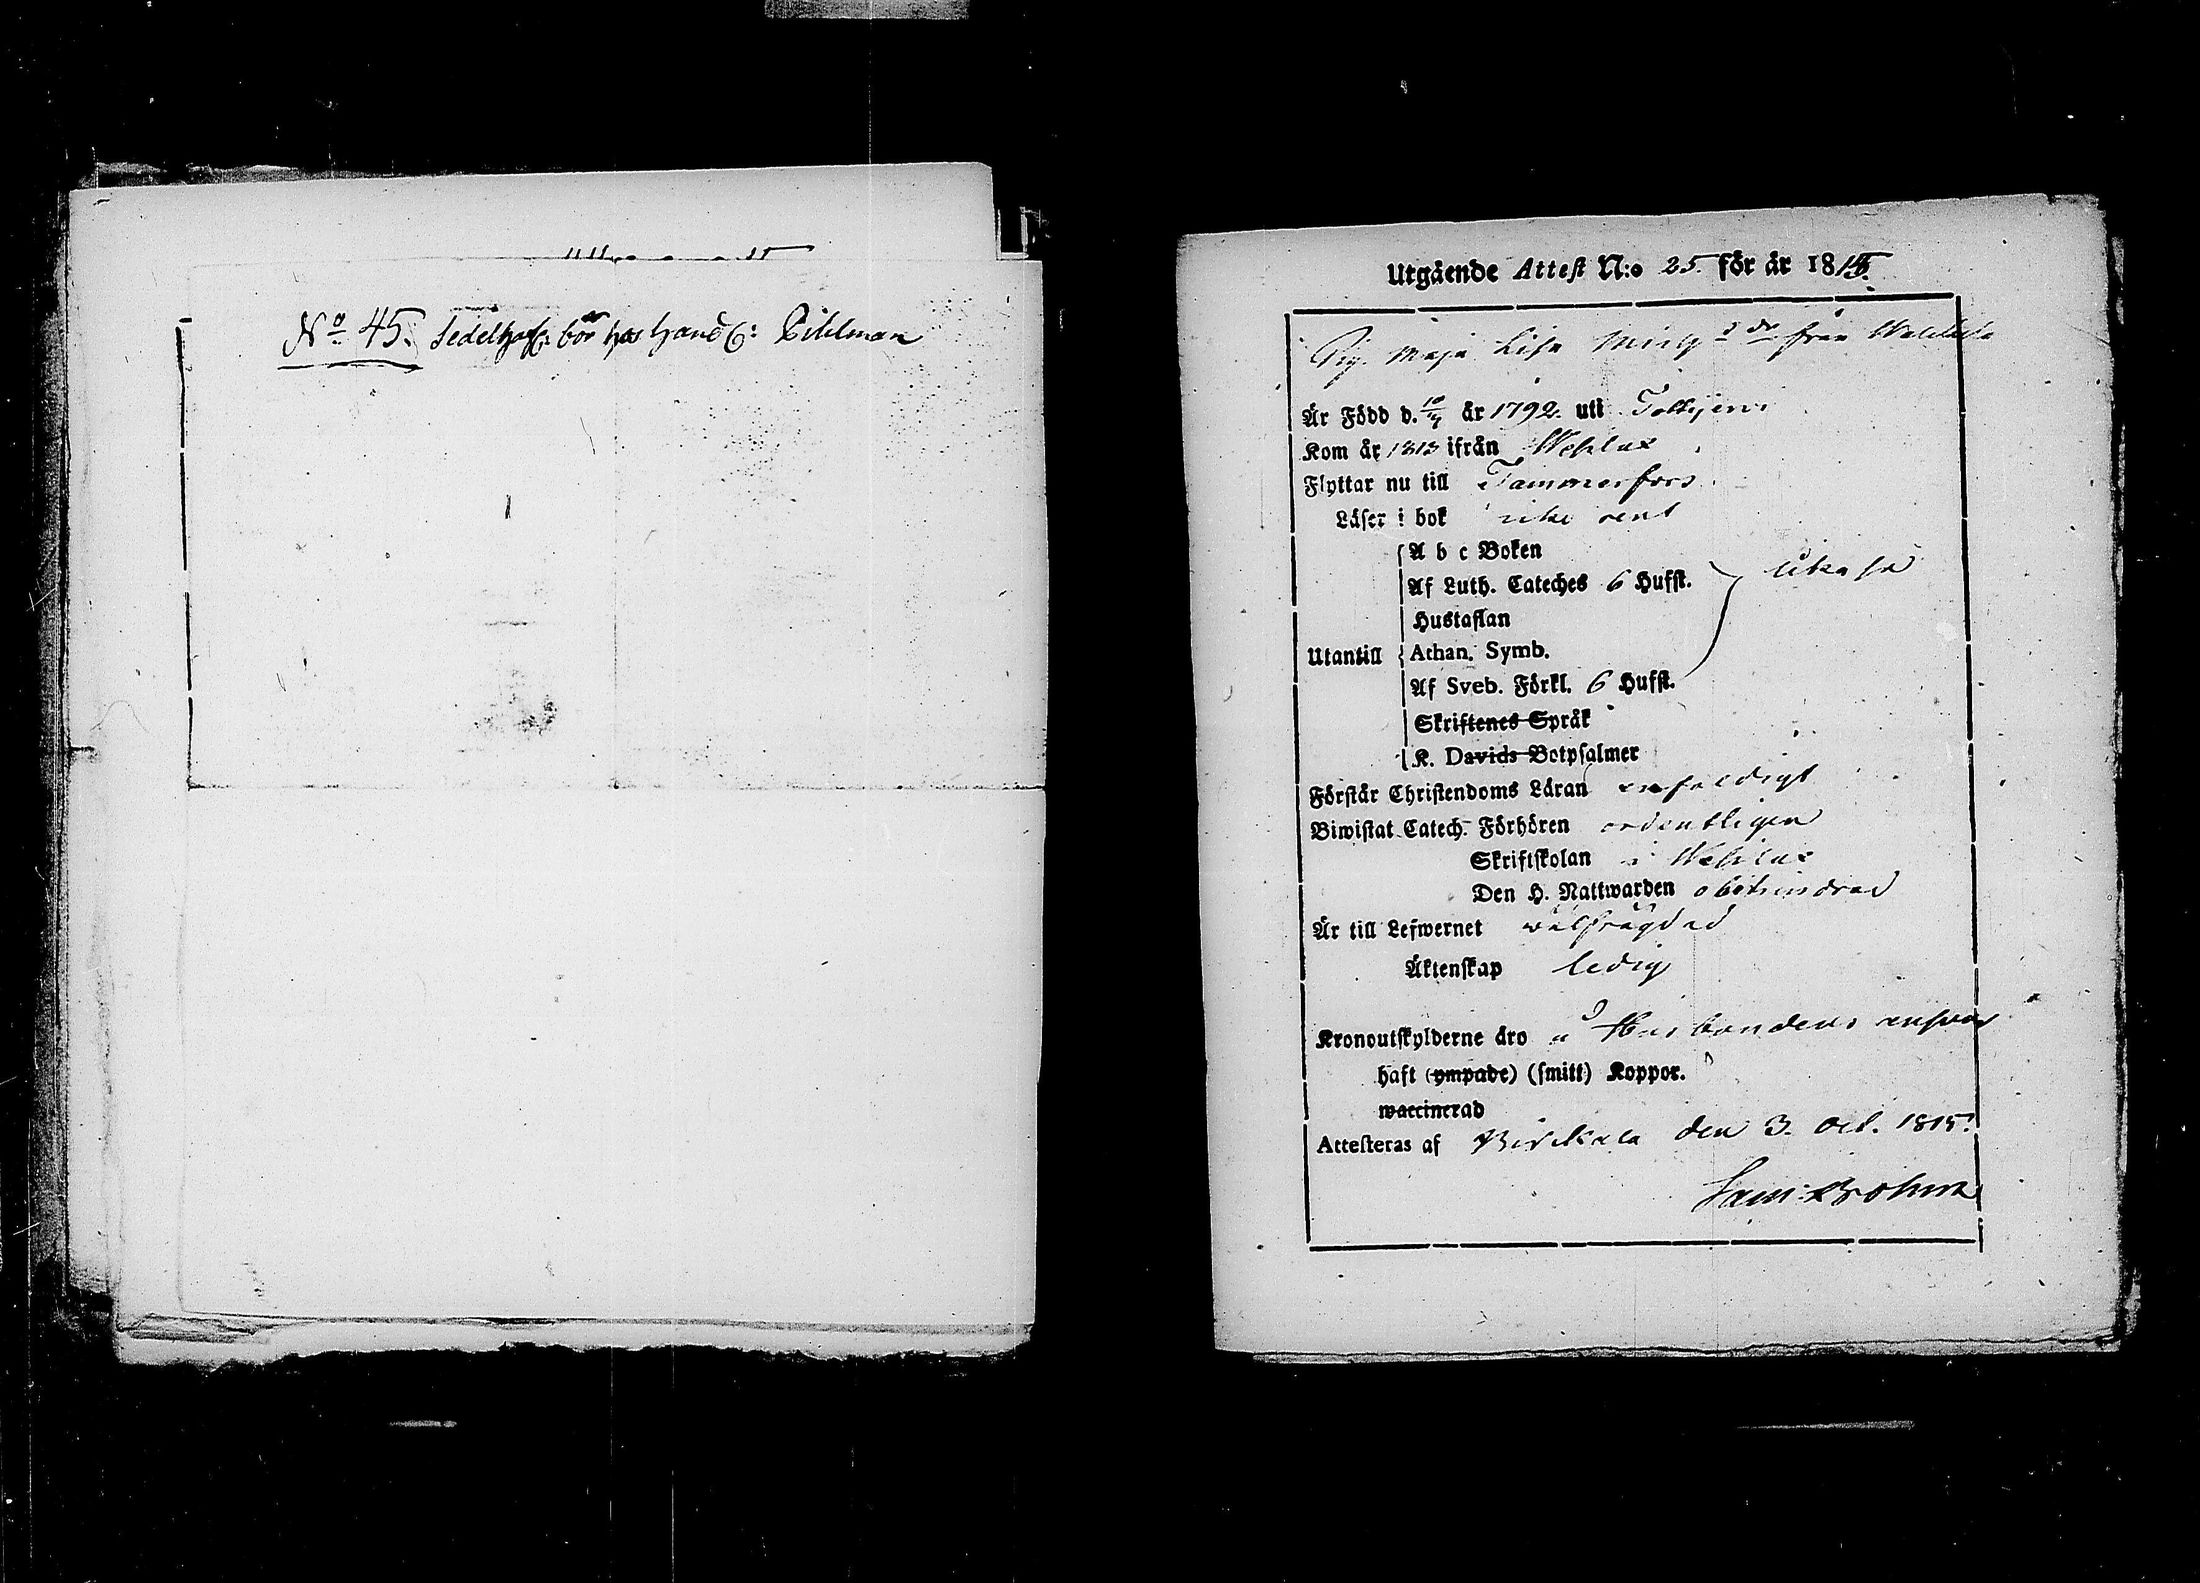 No 45. Sedelhaf: bör hos Hand C: Pihlman
Utgående Attest N:o 25. för år 1815.
Pig. Maja Lisa från
Är Född d. 10/4 år 1792. uti
Kom år 1813 ifrån Wehlax
Flyttar nu till Tammerfors.
Läser i bok icke rent
A b c Boken
Af Luth. Cateches 6 Hufst. lika så
Hustaflan
Utantill Athan. Symb.
Af Sveb. Förkl. 6 Hufst.
Skriftenes Språk
K. Davids Botpsalmer
Förstår Christendoms Läran enfaldigt
Biwistat Catech. Förhören ordentligen
Skriftskolan i Wehlax
Den H. Nattwarden obehindrad
Är till Lefwernet wälfrägdad
Äktenskap ledig
Kronoutskylderne äro å Husbondens answar
haft (ympade) (smitt) Koppor.
waccinerad
Attesteras af Birkkala den 3. Oct. 1815.
Sam: Brohm